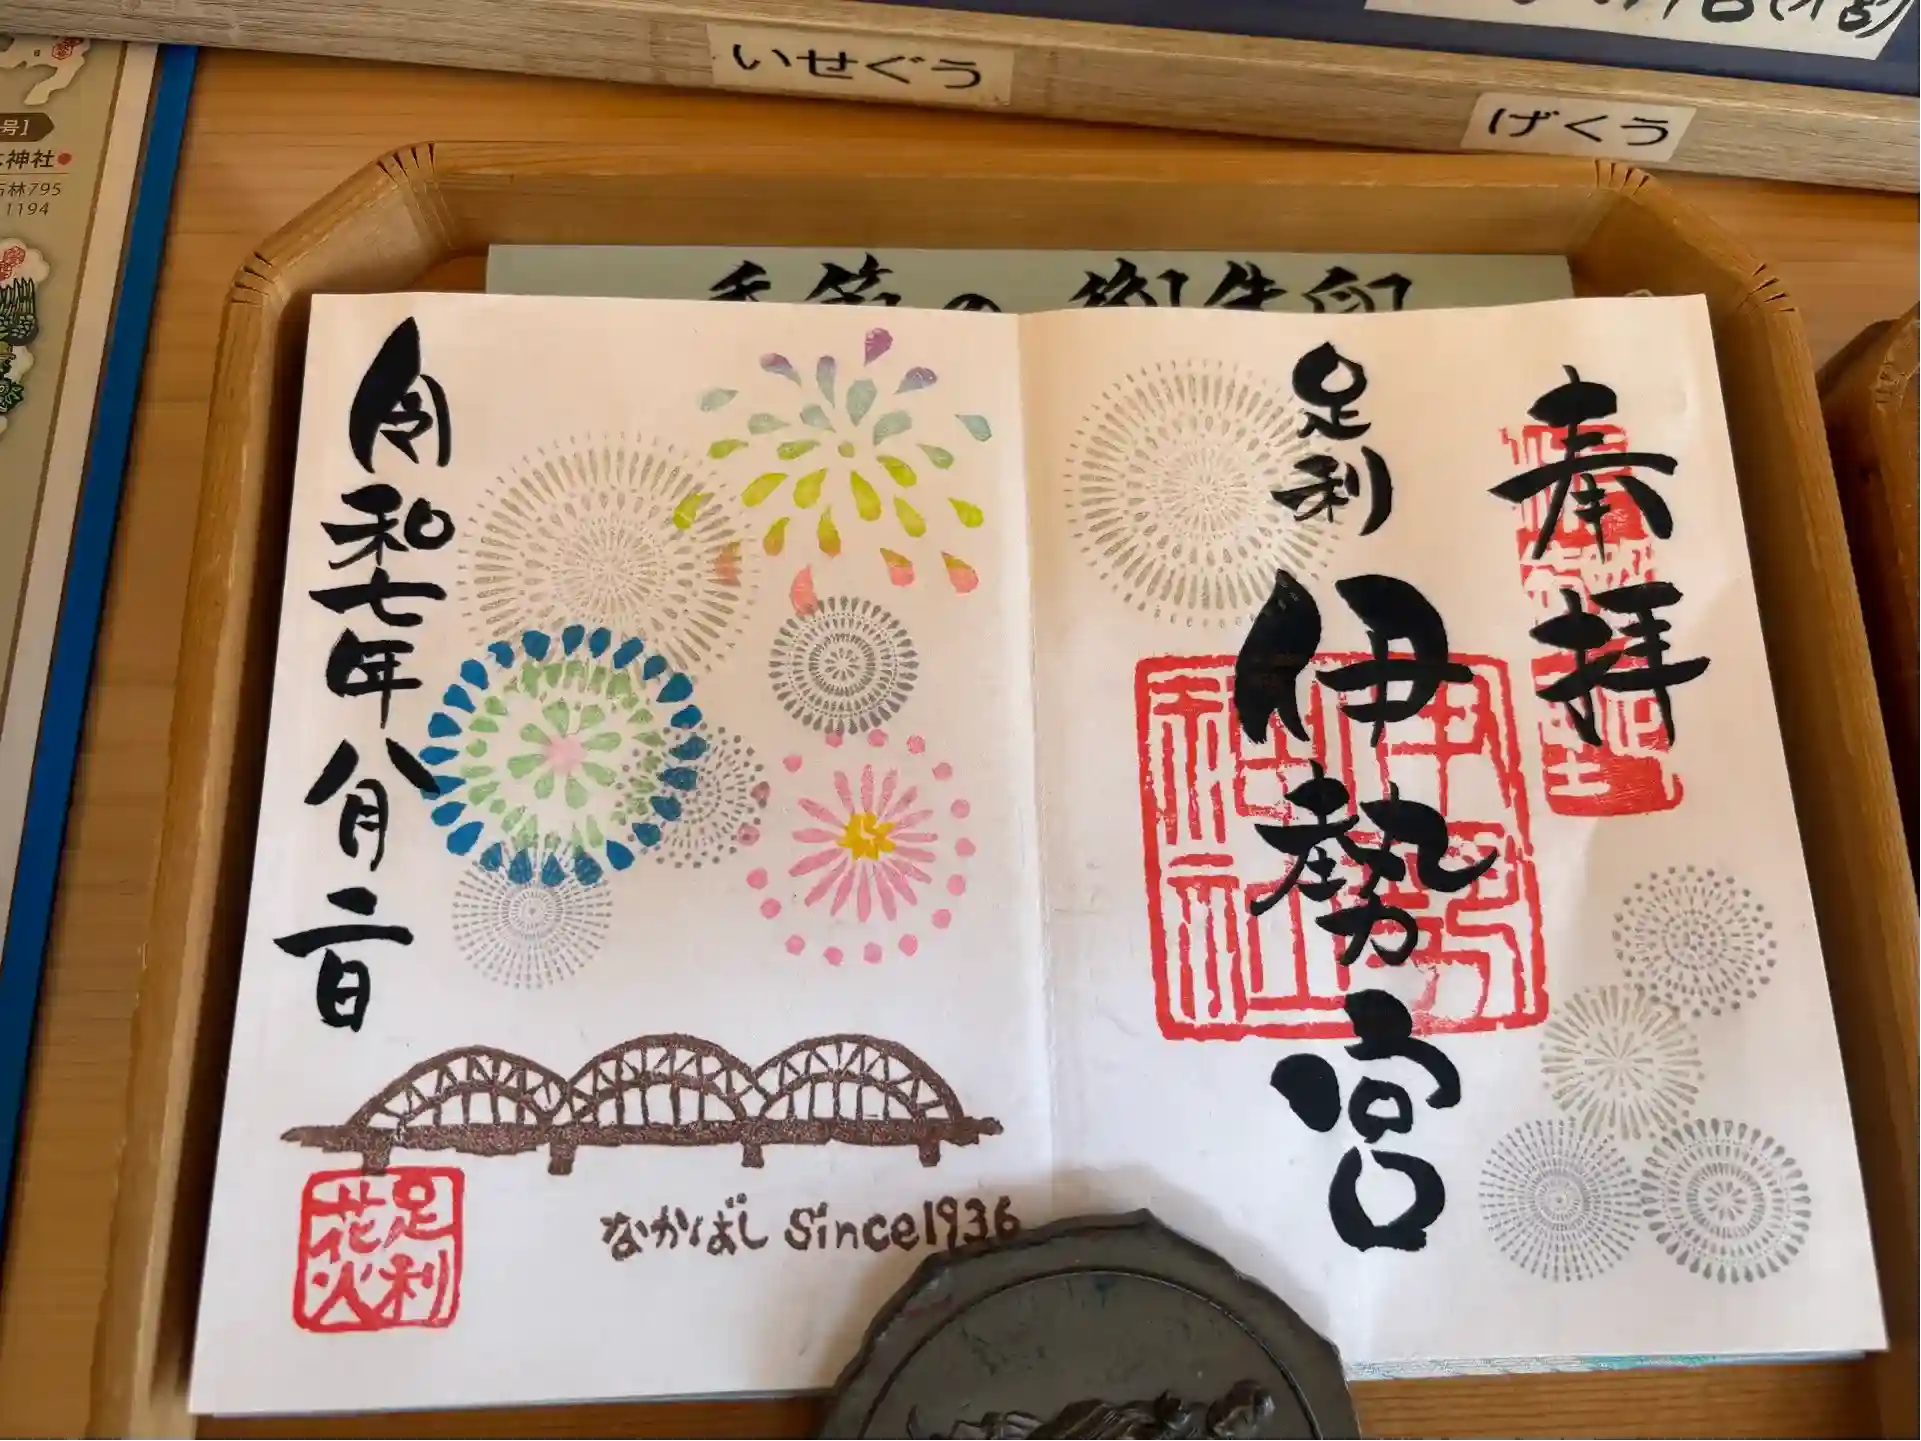 いせぐう
げくう
号1
神社
林795
1194
季節の御朱印
奉拝
足利
伊勢宮
伊勢神社
令和七年八月二日
なかばし Since1936
足利
花火